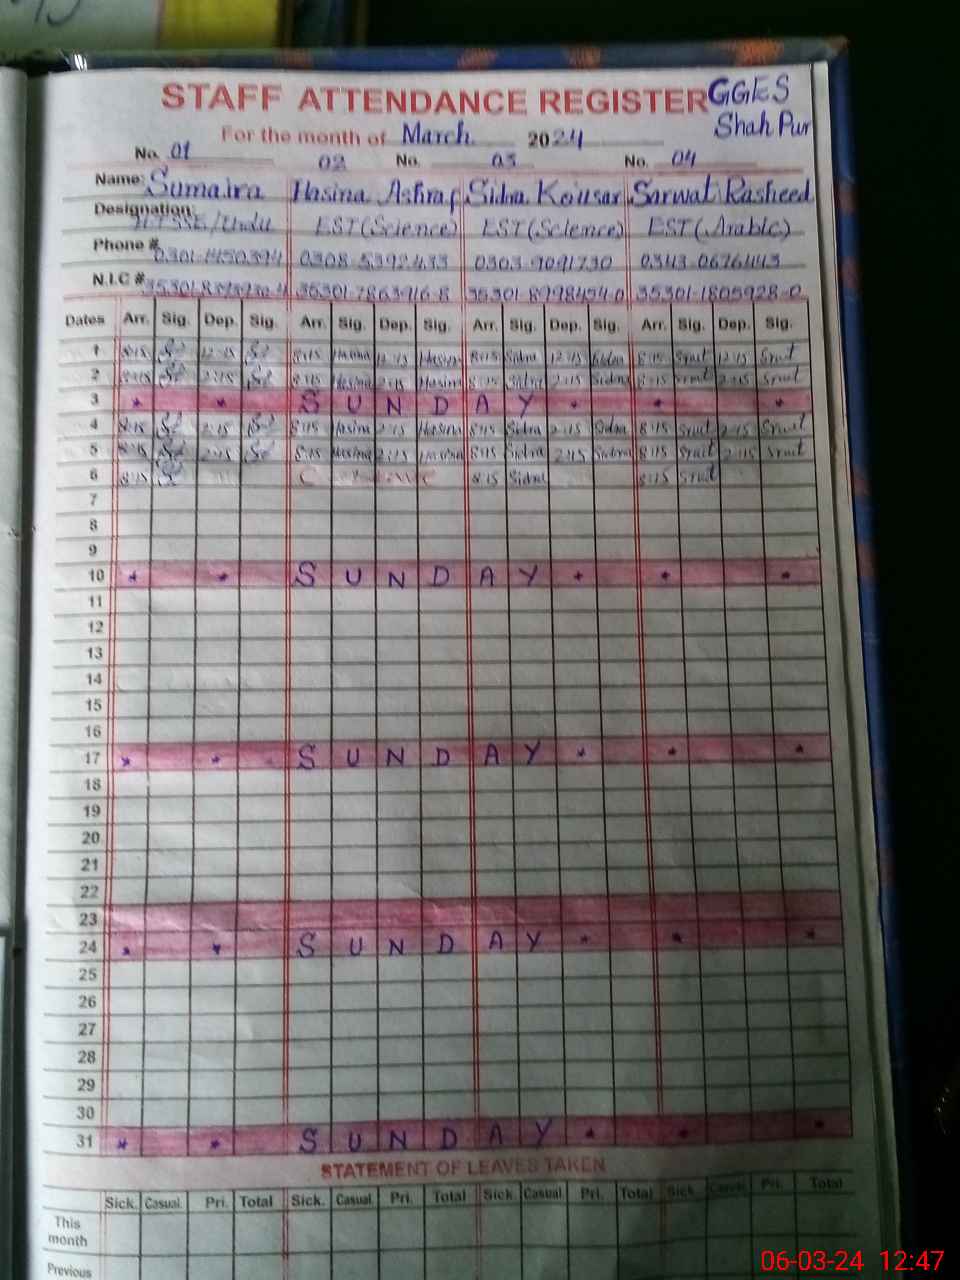 STAFF ATTENDANCE REGISTER GGES
Shah Pur
For the month of March 2024
No. 01 02 No. 03 No. 04
Name: Sumaira Hasina Ashraf Sidra Kousar Sarwat Rasheed
Designation: EST (Science) EST (Science) EST (Arabic)
Phone # 0301-1450394 0308-5392433 0303-9091730 0343-0676443
N.I.C # 35301-7863916-8 35301-8998454-0 35301-1805928-0
Dates Arr. Sig. Dep. Sig. Arr. Sig. Dep. Sig. Arr. Sig. Dep. Sig. Arr. Sig. Dep. Sig.
1 8:15 12:15 8:15 Hasina 12:15 Hasina 8:15 Sidra 12:15 Sidra 8:15 Srwt 12:15 Srwt
2 8:15 2:15 8:15 Hasina 2:15 Hasina 8:15 Sidra 2:15 Sidra 8:15 Srwt 2:15 Srwt
3 * * S U N D A Y * * *
4 8:15 2:15 8:15 Hasina 2:15 Hasina 8:15 Sidra 2:15 Sidra 8:15 Srwt 2:15 Srwt
5 8:15 2:15 8:15 Hasina 2:15 Hasina 8:15 Sidra 2:15 Sidra 8:15 Srwt 2:15 Srwt
6 8:15 C Leave 8:15 Sidra 8:15 Srwt
7
8
9
10 * * S U N D A Y * * *
11
12
13
14
15
16
17 * * S U N D A Y * * *
18
19
20
21
22
23
24 * * S U N D A Y * * *
25
26
27
28
29
30
31 * * S U N D A Y * * *
STATEMENT OF LEAVES TAKEN
Sick. Casual. Pri. Total Sick. Casual. Pri. Total Sick. Casual. Pri. Total Sick. Casual. Pri. Total
This
month
Previous
06-03-24 12:47